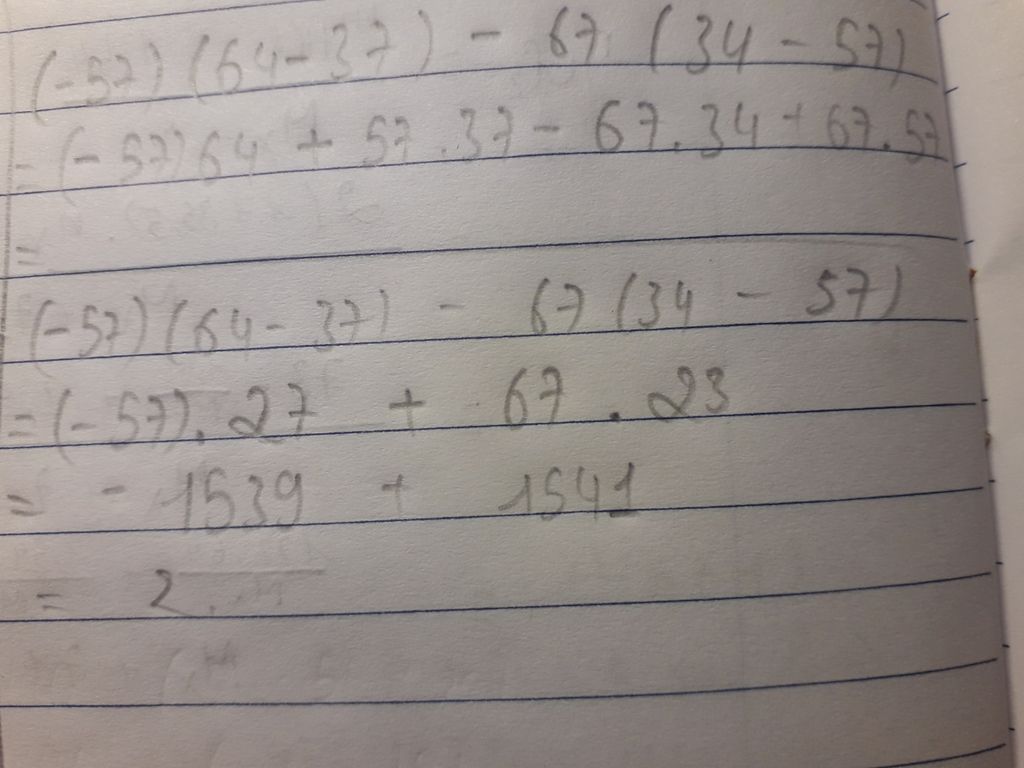 (-57) (64-37) - 67 (34 - 57)
= (-57) 64 + 57.37 - 67.34 + 67.57
=
(-57) (64-37) - 67 (34 - 57)
= (-57). 27 + 67 . 23
= - 1539 + 1541
= 2